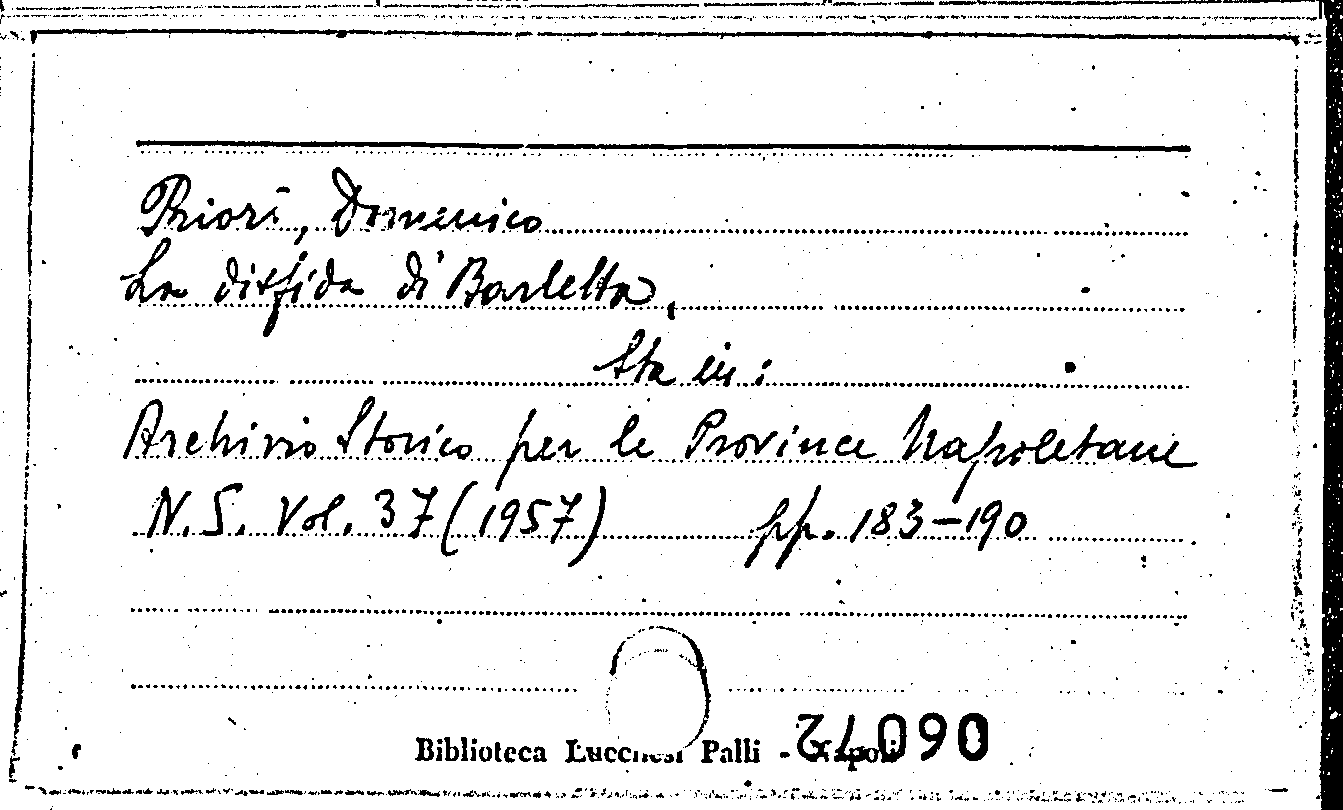 Priori, Domenico
La disfida di Barletta,
Sta in:
Archivio Storico per le Province Napoletane
N.S. Vol. 37 (1957) pp. 183-190
Biblioteca Lucchesi Palli - Napoli